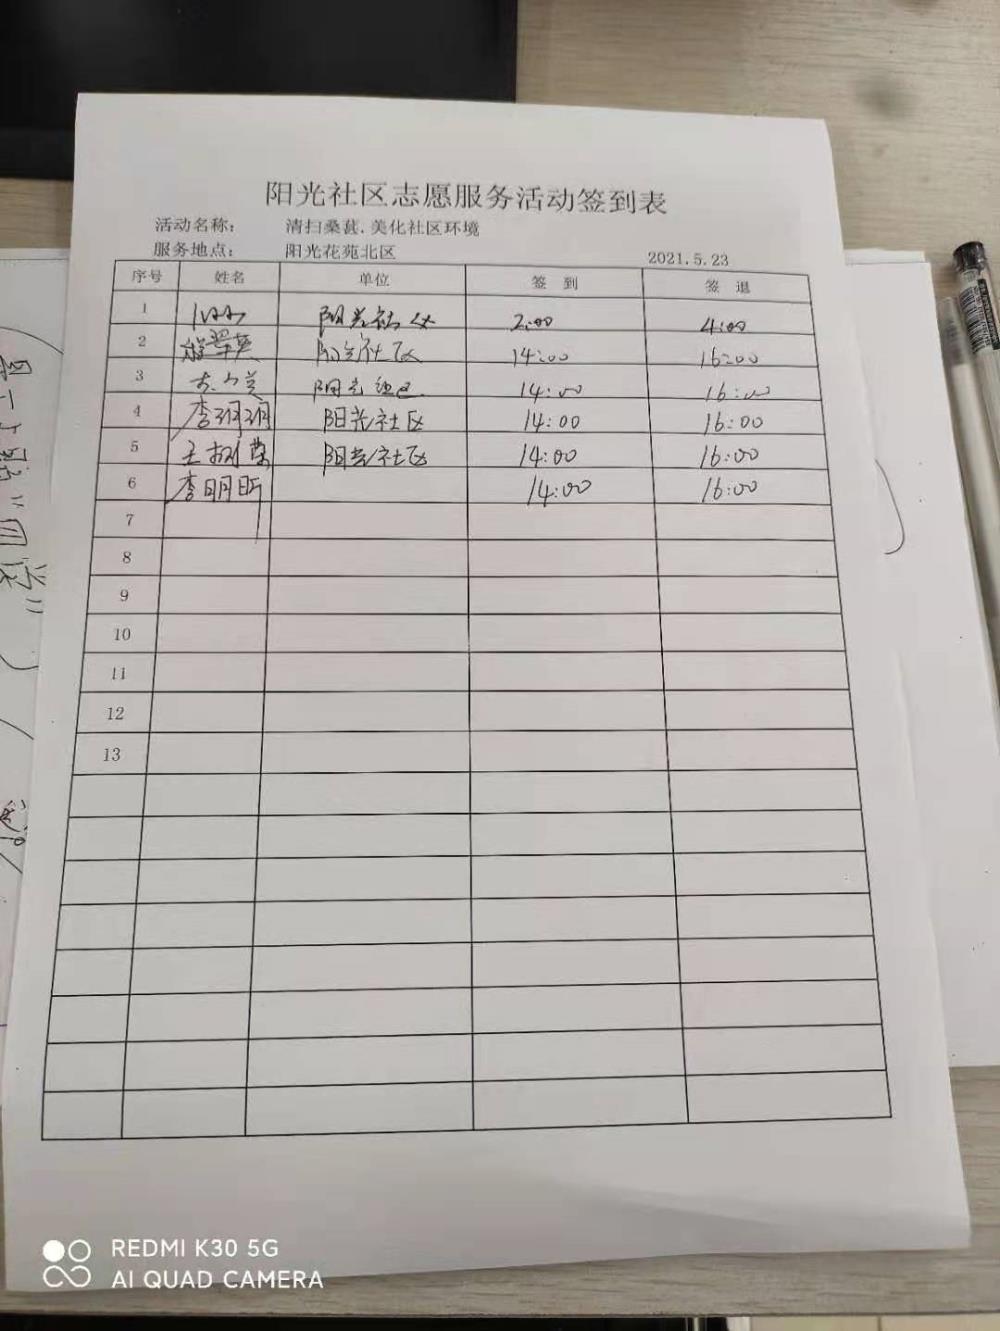 阳光社区志愿服务活动签到表
活动名称： 清扫桑葚.美化社区环境
服务地点： 阳光花苑北区 2021.5.23
序号 姓名 单位 签 到 签 退
1 阳光社区 2:00 4:00
2 阳光社区 14:00 16:00
3 阳光社区 14:00 16:00
4 李玥玥 阳光社区 14:00 16:00
5 王树荣 阳光社区 14:00 16:00
6 李明昕 14:00 16:00
7
8
9
10
11
12
13
REDMI K30 5G
AI QUAD CAMERA